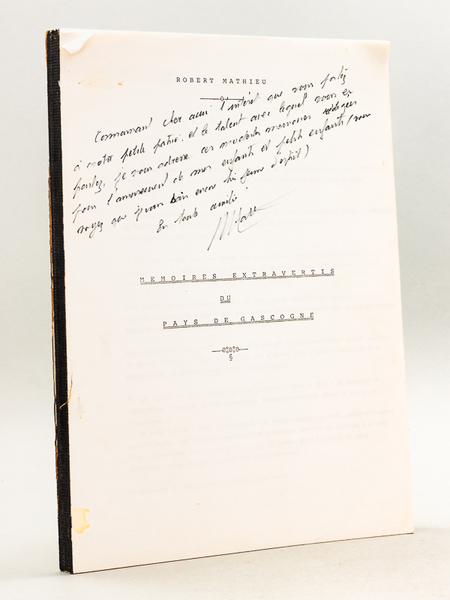 ROBERT MATHIEU
Connaissant cher ami l'intérêt que vous portez
à notre petite patrie et le talent avec lequel vous en
parlez, je vous adresse ces modestes mémoires rédigées
pour l'amusement de mes enfants et petits enfants (vous
voyez que je suis bien encore d'esprit)
En toute amitié
MEMOIRES EXTRAVERTIS
DU
PAYS DE GASCOGNE
§